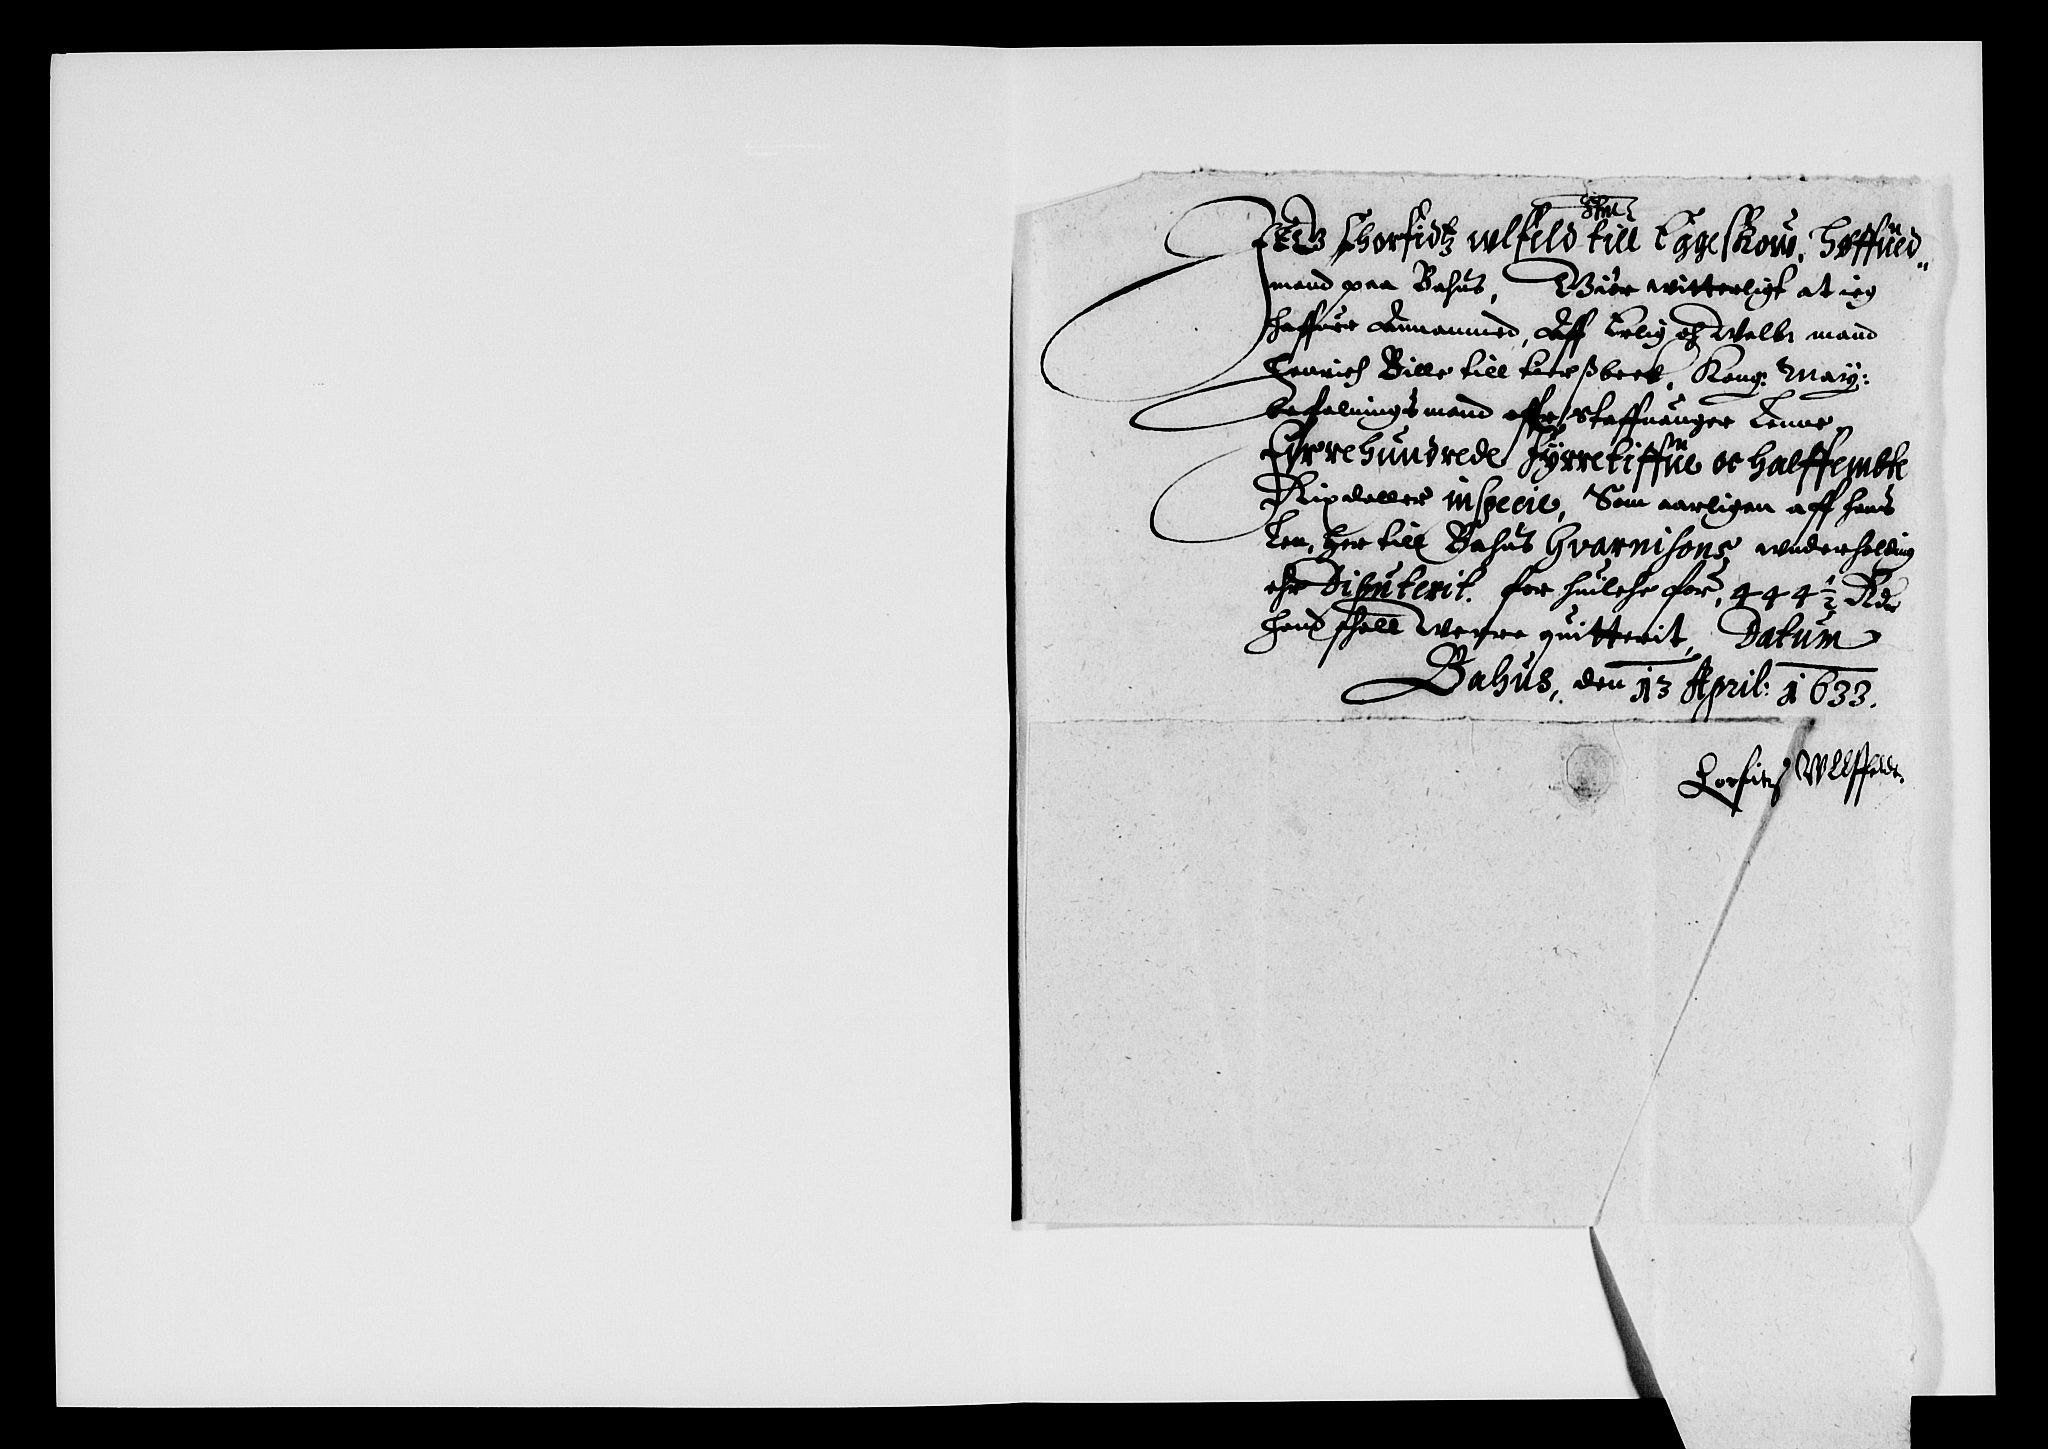 Jeg Chorfidtz wlfeld till Eggeskow, höffued„
mand paa Bahus, Giör witterligt at ieg
haffuer Annammed, Aff Erlig och Welb: mand
Henrich Bille till tirssbeck, Kong: May:
befalningsmand offr Staffuanger Lenne,
Fyrrehundrede Fyrretiffue oc halffembte
Rixdaller inspecie, Som aarligen aff hans
Len, her till Bahus Gvarnisons wnderholding
ehr Diputerit. for huilche for, 444 1/2 Rdr
hand schall Werre quitterit, Datum
Bahus, den 13 April: 1633.
Lorfitz Wllffeldt.